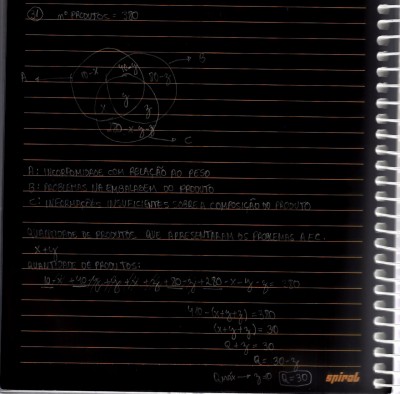 Nº PRODUTOS = 380
B
A
10-x
40-y
80-z
x
y
z
C
A: INCORFOMIDADE COM RELAÇÃO AO PESO
B: PROBLEMAS NA EMBALAGEM DO PRODUTO
C: INFORMAÇÕES INSUFICIENTES SOBRE A COMPOSIÇÃO DO PRODUTO
QUANTIDADE DE PRODUTOS QUE APRESENTARAM OS PROBLEMAS A E C:
x+y
QUANTIDADE DE PRODUTOS:
410-(x+y+z)=380
(x+y+z)=30
Q+z=30
Q=30-z
Qmáx → z=0 Q=30
spiral